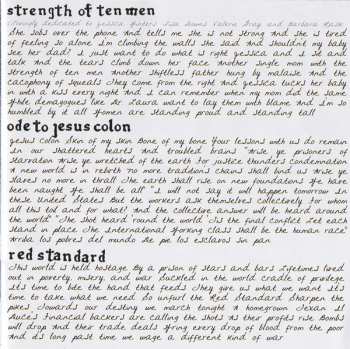 strength of ten men
dedicated to Jessica
She sobs over the phone And tells me she is not strong And she is tired
of feeling so alone I'm climbing the walls she said And shouldn't my baby
see her dad? I just want to do what is right Jessica and I sit and
talk And the tears climb down her face Another single mom with the
strength of ten men Another shiftless father hung by malaise And the
cacophony of squeals They come from the right And Jessica tucks her baby
in with a kiss every night And I can remember when my mom did the same
While demagogues like Dr Laura want to lay them with blame And I'm so
humbled by it all Women are standing proud and standing tall
ode to jesus colon
Jesus Colon Skin of my skin Bone of my bone Your lessons with us do remain
In our shattered hearts And troubled brains "Arise ye prisoners of
starvation Arise ye wretched of the earth For justice thunders condemnation
A new world is in rebirth No more tradition's chains shall bind us Arise ye
slaves no more in thrall The earth shall rise on new foundations We have
been naught We shall be all" I will not say it will happen tomorrow In
these United States But the workers ask themselves collectively For whom
all this toil and for what? And the collective answer will be heard around
the world "The shot heard round the world 'tis the final conflict Let each
stand in place The International Working Class shall be the human race"
Arriba los pobres del mundo De pie los esclavos sin pan
red standard
This world is held hostage By a prison of stars and bars Lifetimes lived
out in poverty, misery, and war Suckled in the world cradle of privilege
It's time to bite the hand that feeds They give us what we want It's
time to take what we need So unfurl the Red Standard Sharpen the
pikes Towards our destiny we march tonight A homegrown Texan It
financial backers are calling the shots As their profits rise Bombs
will drop And their trade deals Wring every drop of blood from the poor
And it's long past time we wage a different kind of war